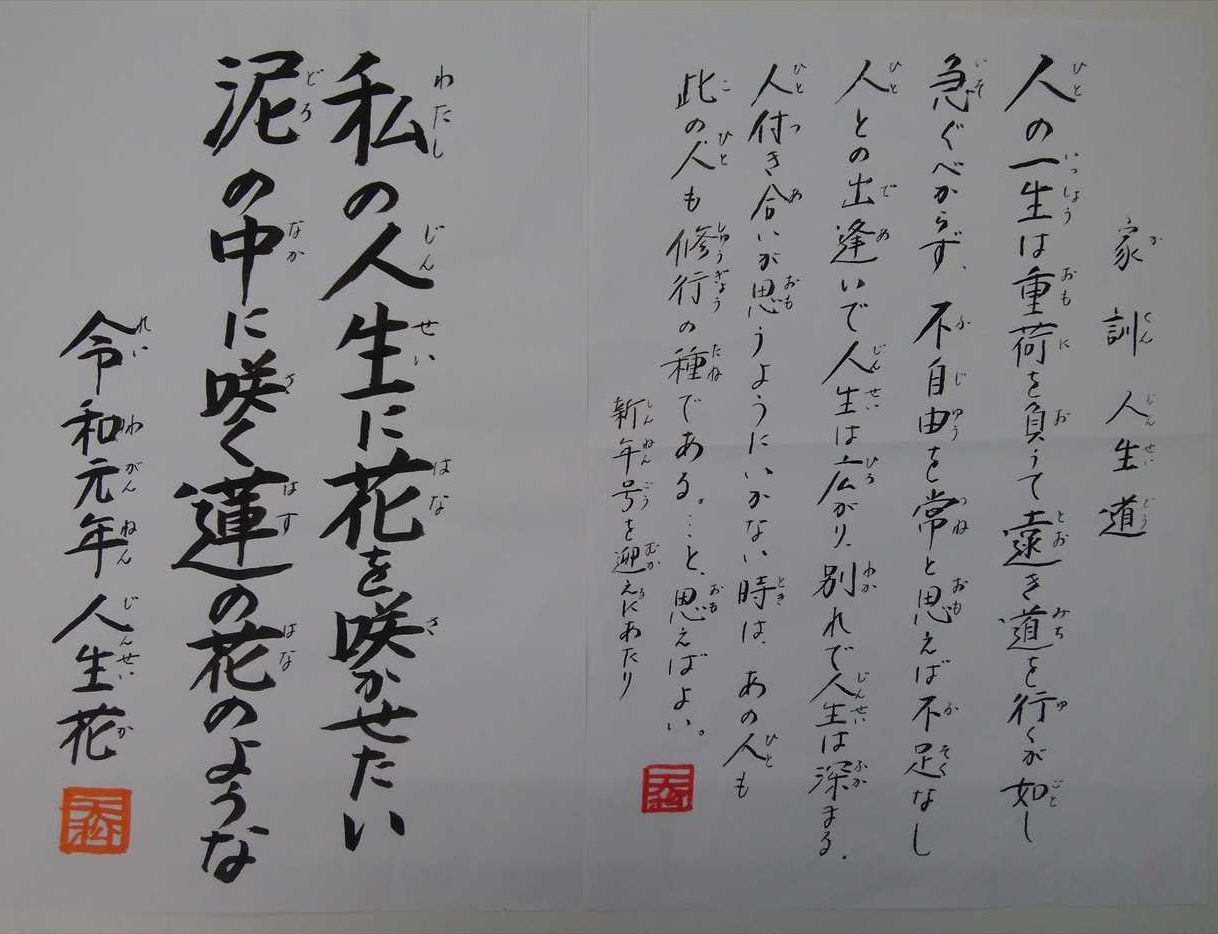 家訓 人生道
人の一生は重荷を負うて遠き道を行くが如し
急ぐべからず、不自由を常と思えば不足なし
人との出逢いで人生は広がり、別れで人生は深まる。
人付き合いが思うようにいかない時は、あの人も
此の人も修行の種である。…と、思えばよい。
新年号を迎えにあたり
私の人生に花を咲かせたい
泥の中に咲く蓮の花のような
令和元年 人生花